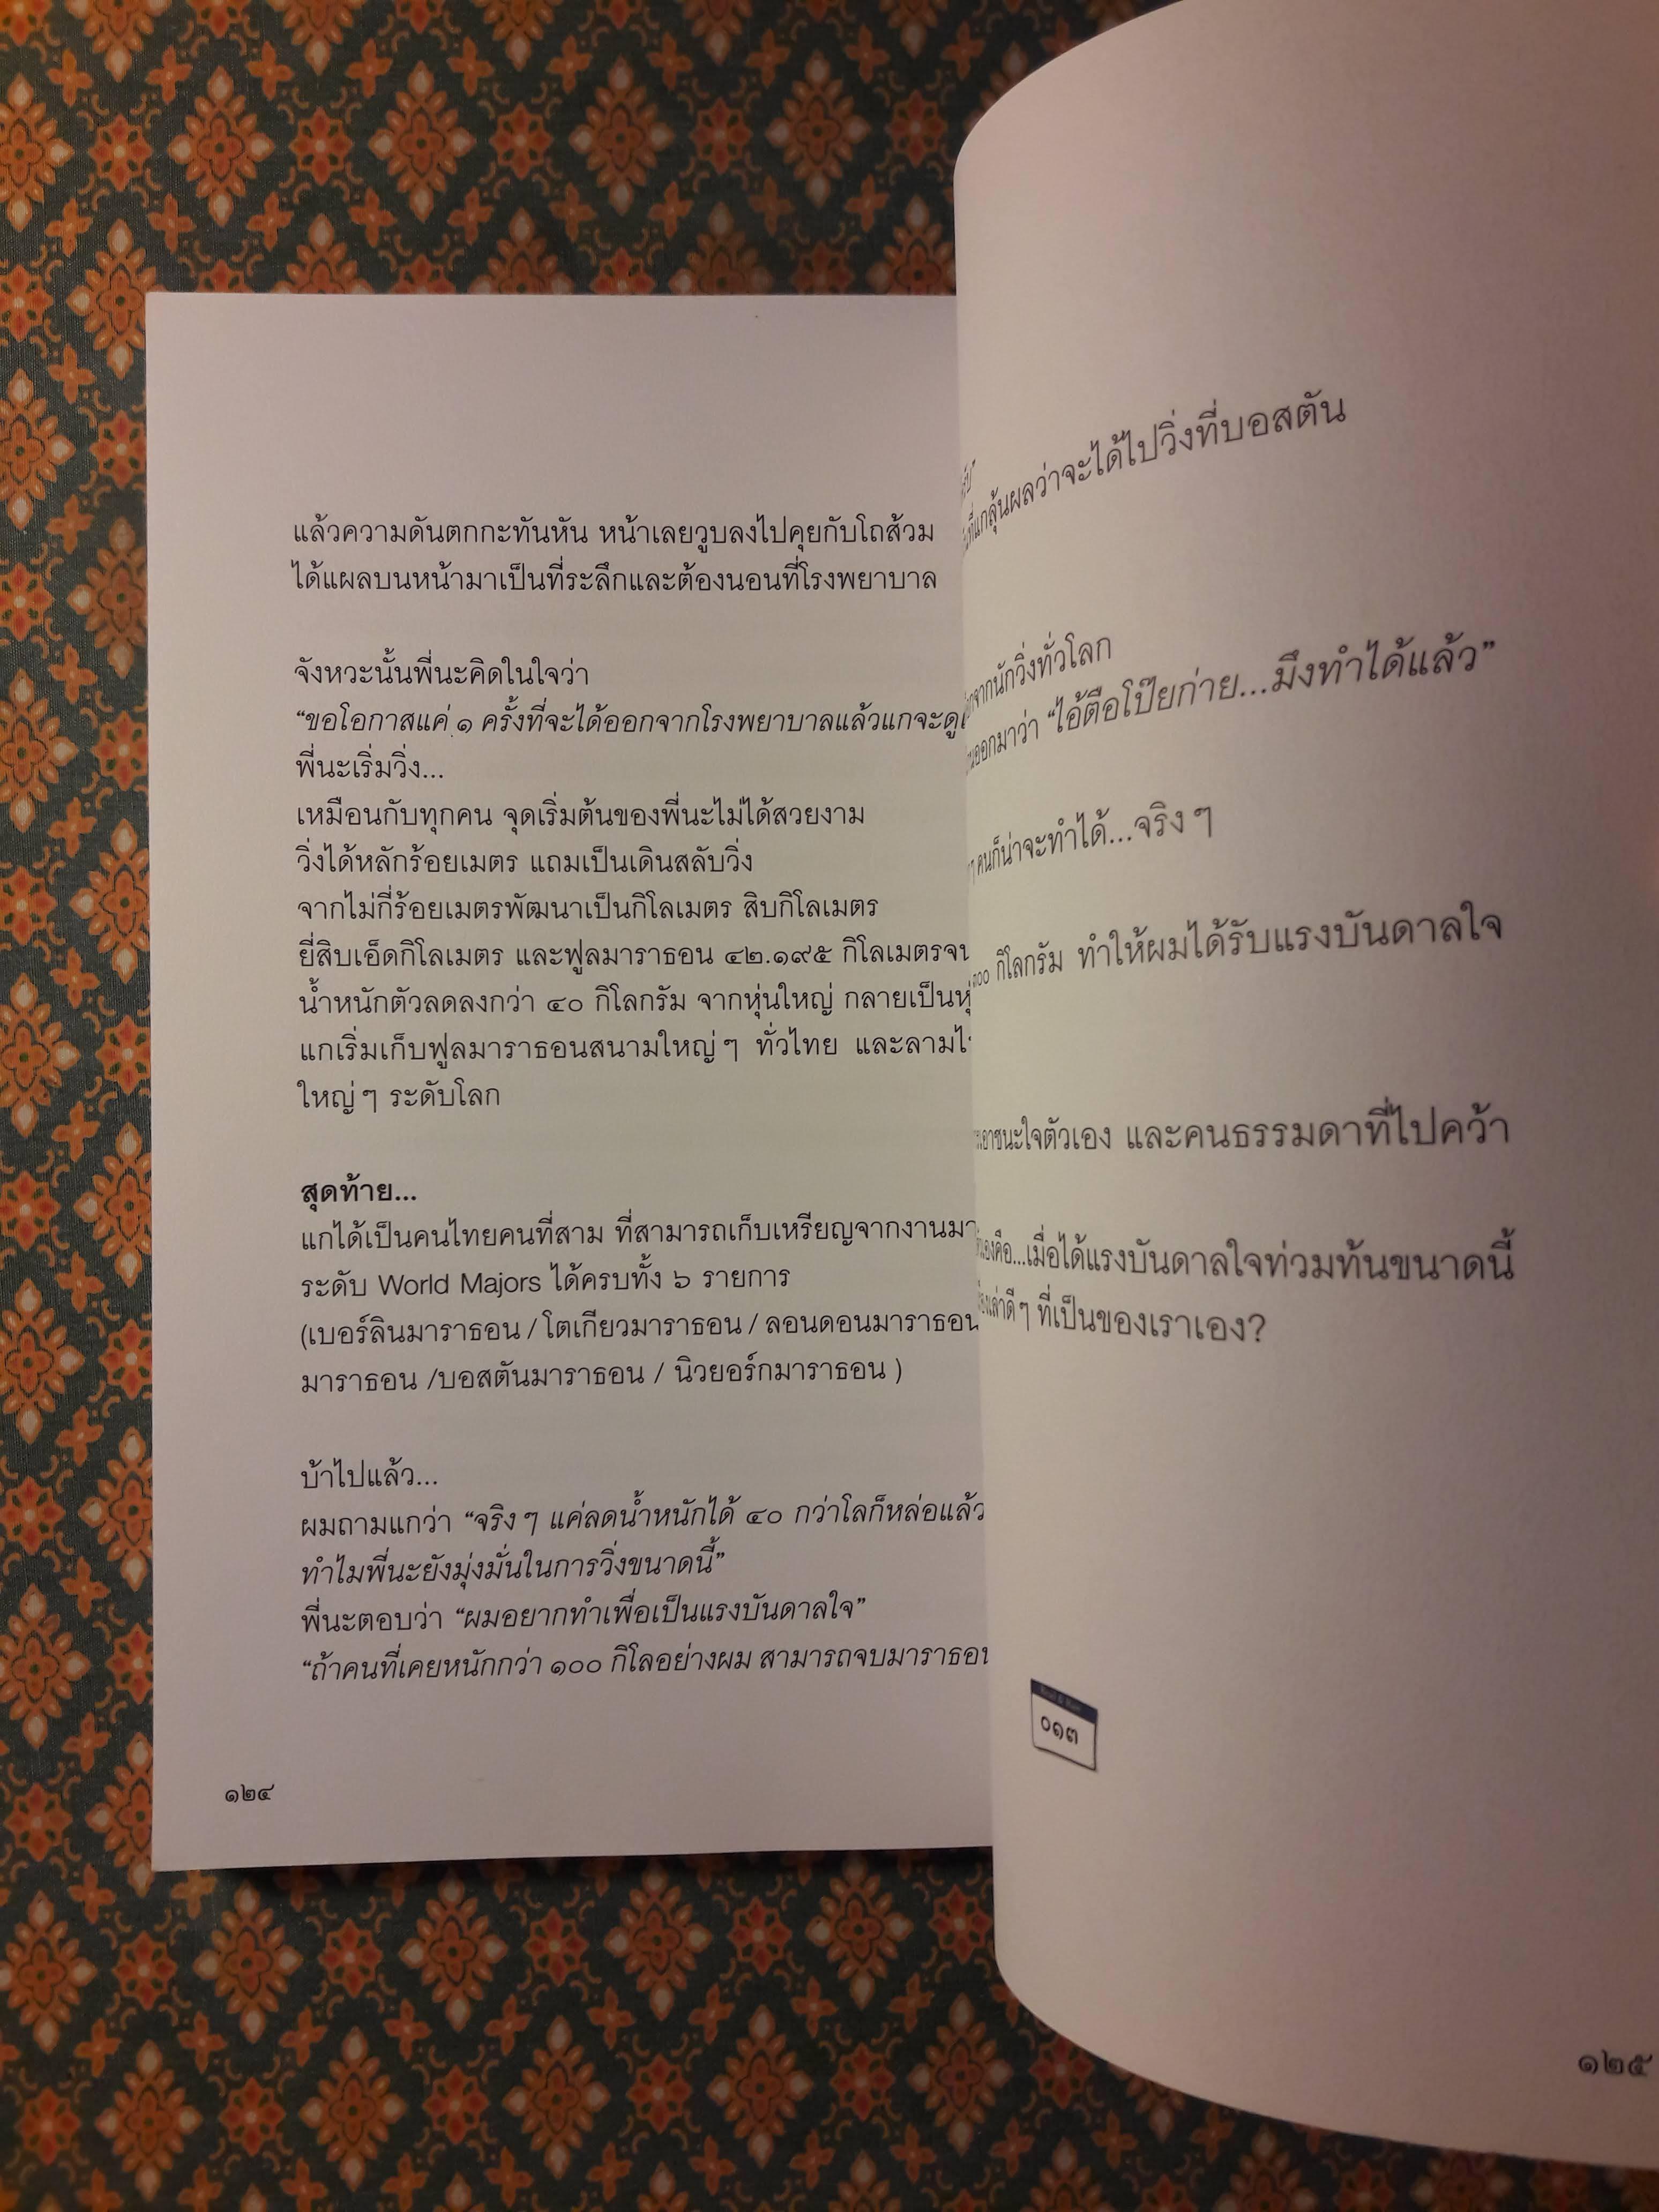 แล้วความดันตกกะทันหัน หน้าเลยวูบลงไปคุยกับโถส้วม
ได้แผลบนหน้ามาเป็นที่ระลึกและต้องนอนที่โรงพยาบาล
จังหวะนั้นพี่นะคิดในใจว่า
“ขอโอกาสแค่ ๑ ครั้งที่จะได้ออกจากโรงพยาบาลแล้วแกจะดู
พี่นะเริ่มวิ่ง...
เหมือนกับทุกคน จุดเริ่มต้นของพี่นะไม่ได้สวยงาม
วิ่งได้หลักร้อยเมตร แถมเป็นเดินสลับวิ่ง
จากไม่กี่ร้อยเมตรพัฒนาเป็นกิโลเมตร สิบกิโลเมตร
ยี่สิบเอ็ดกิโลเมตร และฟูลมาราธอน ๔๒.๑๙๕ กิโลเมตรจน
น้ำหนักตัวลดลงกว่า ๔๐ กิโลกรัม จากหุ่นใหญ่ กลายเป็น
แกเริ่มเก็บฟูลมาราธอนสนามใหญ่ๆ ทั่วไทย และลาม
ใหญ่ๆ ระดับโลก
สุดท้าย...
แกได้เป็นคนไทยคนที่สาม ที่สามารถเก็บเหรียญจากงานมา
ระดับ World Majors ได้ครบทั้ง ๖ รายการ
(เบอร์ลินมาราธอน / โตเกียวมาราธอน / ลอนดอนมาราธอน
มาราธอน /บอสตันมาราธอน / นิวยอร์กมาราธอน )
บ้าไปแล้ว...
ผมถามแกว่า “จริงๆ แค่ลดน้ำหนักได้ ๔๐ กว่าโลก็หล่อแล้ว
ทำไมพี่นะยังมุ่งมั่นในการวิ่งขนาดนี้”
พี่นะตอบว่า “ผมอยากทำเพื่อเป็นแรงบันดาลใจ”
“ถ้าคนที่เคยหนักกว่า ๑๐๐ กิโลอย่างผม สามารถจบมาราธอน
๑๒๔
ที่แกลุ้นผลว่าจะได้ไปวิ่งที่บอสตัน
จากนักวิ่งทั่วโลก
ออกมาว่า “ไอ้ตือโป๊ยก่าย...มึงทำได้แล้ว”
คนก็น่าจะทำได้...จริงๆ
๑๐๐ กิโลกรัม ทำให้ผมได้รับแรงบันดาลใจ
เอาชนะใจตัวเอง และคนธรรมดาที่ไปคว้า
คือ...เมื่อได้แรงบันดาลใจท่วมท้นขนาดนี้
เล่าดีๆ ที่เป็นของเราเอง?
๐๑๓
๑๒๕